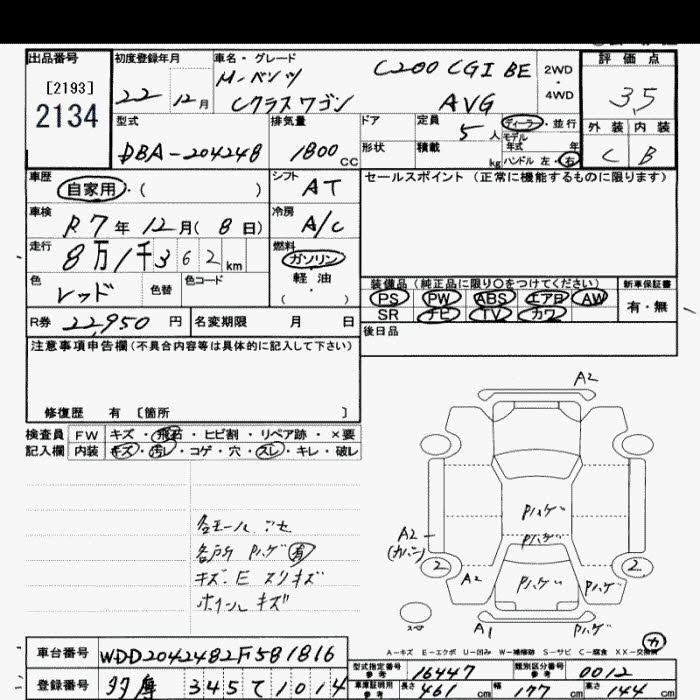 出品番号 初度登録年月 車名・グレード 評価点
[2193] M・ベンツ C200 CGI BE 2WD
2134 22 12月 Cクラスワゴン AVG 4WD 3.5
型式 排気量 ドア 定員 5人 ディーラー・並行 外装 内装
DBA-204248 1800cc 形状 積載 kg モデル年式 年 C B
ハンドル 左・右
車歴 自家用・( ) シフト AT セールスポイント(正常に機能するものに限ります)
車検 R7年12月(8日) 冷房 A/C
走行 8万1千362km 燃料 ガソリン
色 レッド 色替 色コード 軽油
( ・ )
装備品(純正品に限り○をつけてください) 新車保証書
PS PW ABS エアB AW 有・無
R券 22,950円 名変期限 月 日 SR ナビ TV カワ
注意事項申告欄(不具合内容等は具体的に記入して下さい) 後日品
修復歴 有 [箇所 ]
検査員 FW キズ・飛石・ヒビ割・リペア跡・×要
記入欄 内装 キズ・汚レ・コゲ・穴・スレ・キレ・破レ
各モール
各所 Pハゲ 有
キズ・E スリキズ
ホイールキズ
A2
Pハゲ
Pハゲ
A2
2 A2 Pハゲ Pハゲ 2
A1 Pハゲ
A-キズ E-エクボ U-凹み W-補修跡 S-サビ C-腐食 XX-交換済
車台番号 WDD2042482F581816
型式指定番号 参考 16447 類別区分番号 参考 0012
登録番号 多摩 345 て 1014
車庫証明用 参考 長さ 461cm 幅 177cm 高さ 144cm